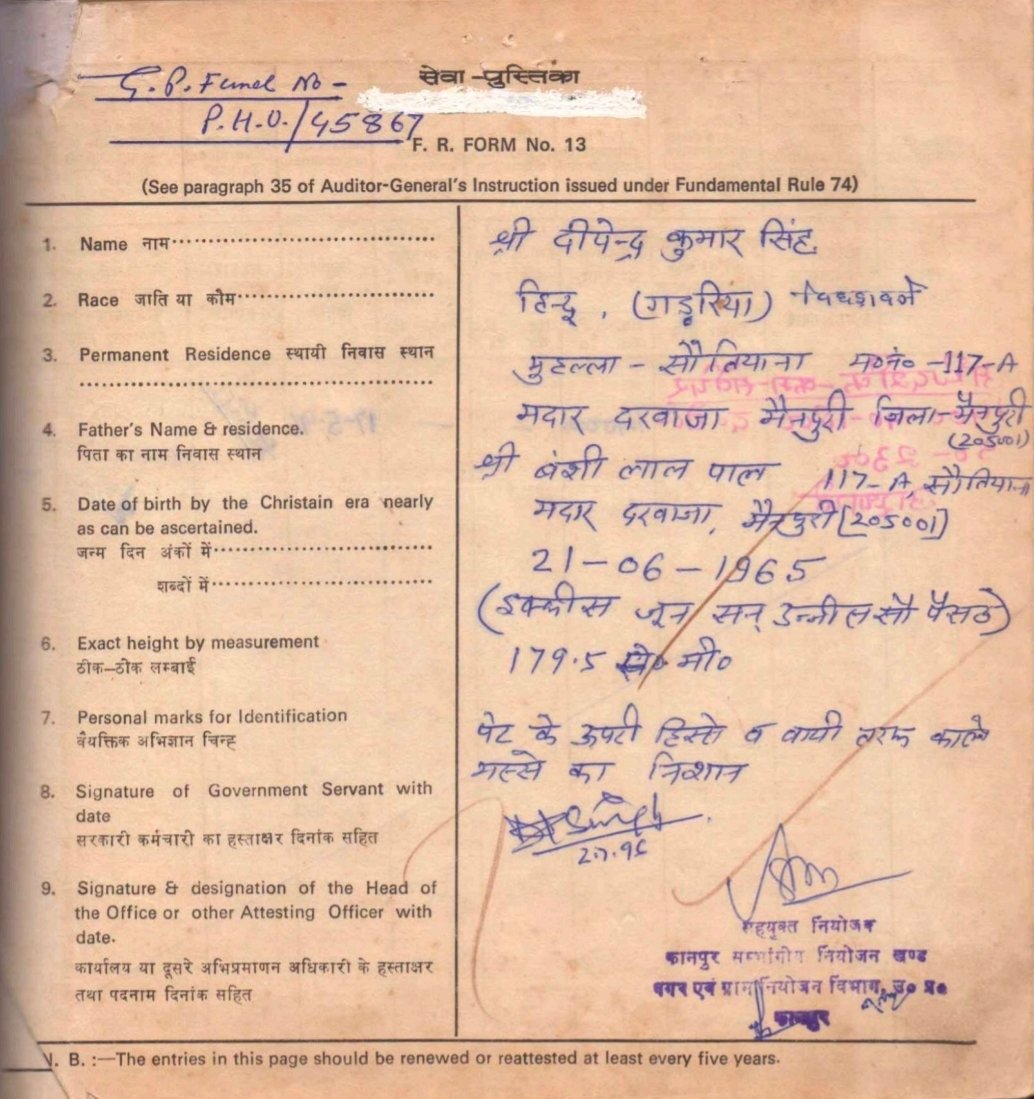 सेवा -पुस्तिका
G.P. Fund No -
P.H.O./45867
F. R. FORM No. 13
(See paragraph 35 of Auditor-General's Instruction issued under Fundamental Rule 74)
1. Name नाम
श्री दीपेन्द्र कुमार सिंह
2. Race जाति या कौम
हिन्दू , (गड़रिया)
3. Permanent Residence स्थायी निवास स्थान
मुहल्ला - सौतियाना म०नं० -117-A
मदार दरवाजा मैनपुरी जिला-मैनपुरी
(205001)
4. Father's Name & residence.
पिता का नाम निवास स्थान
श्री बंशी लाल पाल 117-A सौतियाना
मदार दरवाजा, मैनपुरी [205001]
5. Date of birth by the Christain era nearly
as can be ascertained.
जन्म दिन अंकों में
21-06-1965
शब्दों में
(इक्कीस जून सन् उन्नीस सौ पैसठ)
6. Exact height by measurement
ठीक–ठोक लम्बाई
179.5 से० मी०
7. Personal marks for Identification
वैयक्तिक अभिज्ञान चिन्ह
पेट के ऊपरी हिस्से व बायी तरफ काले
मस्से का निशान
8. Signature of Government Servant with
date
सरकारी कर्मचारी का हस्ताक्षर दिनांक सहित
Singh
9. Signature & designation of the Head of
the Office or other Attesting Officer with
date.
कार्यालय या दूसरे अभिप्रमाणन अधिकारी के हस्ताक्षर
तथा पदनाम दिनांक सहित
सहयुक्त नियोजक
कानपुर सम्भागीय नियोजन खण्ड
नगर एवं ग्राम नियोजन विभाग, उ० प्र०
कानपुर
N. B. :—The entries in this page should be renewed or reattested at least every five years.